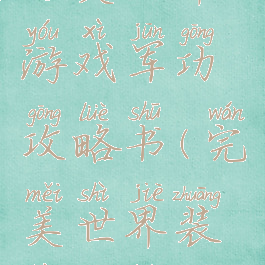 yóu xì jūn gōng
游戏军功
gōng lüè shū wán
攻略书(完
měi shì jiè zhuāng
美世界装